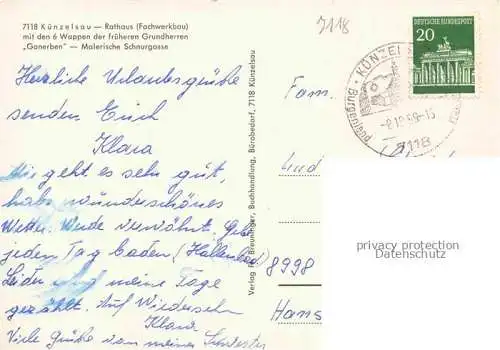 7118 Künzelsau — Rathaus (Fachwerkbau)
mit den 6 Wappen der früheren Grundherren
„Ganerben" — Malerische Schnurgasse
7118
DEUTSCHE BUNDESPOST
20
KÜNZELS
-8.10.69-15
7118
Herzliche Urlaubsgrüße
senden Euch
Klara
Mir geht es sehr gut,
habe wunderschönes
Wetter. Werde verwöhnt. Gehe
jeden Tag baden (Hallenbad)
Leider sind meine Tage
gezählt. Auf Wiedersehn
Klara
Viele Grüße von meiner
Verlag Fr. Breuninger, Buchhandlung, Bürobedarf, 7118 Künzelsau
Fam.
8998
Hans
privacy protection
Datenschutz